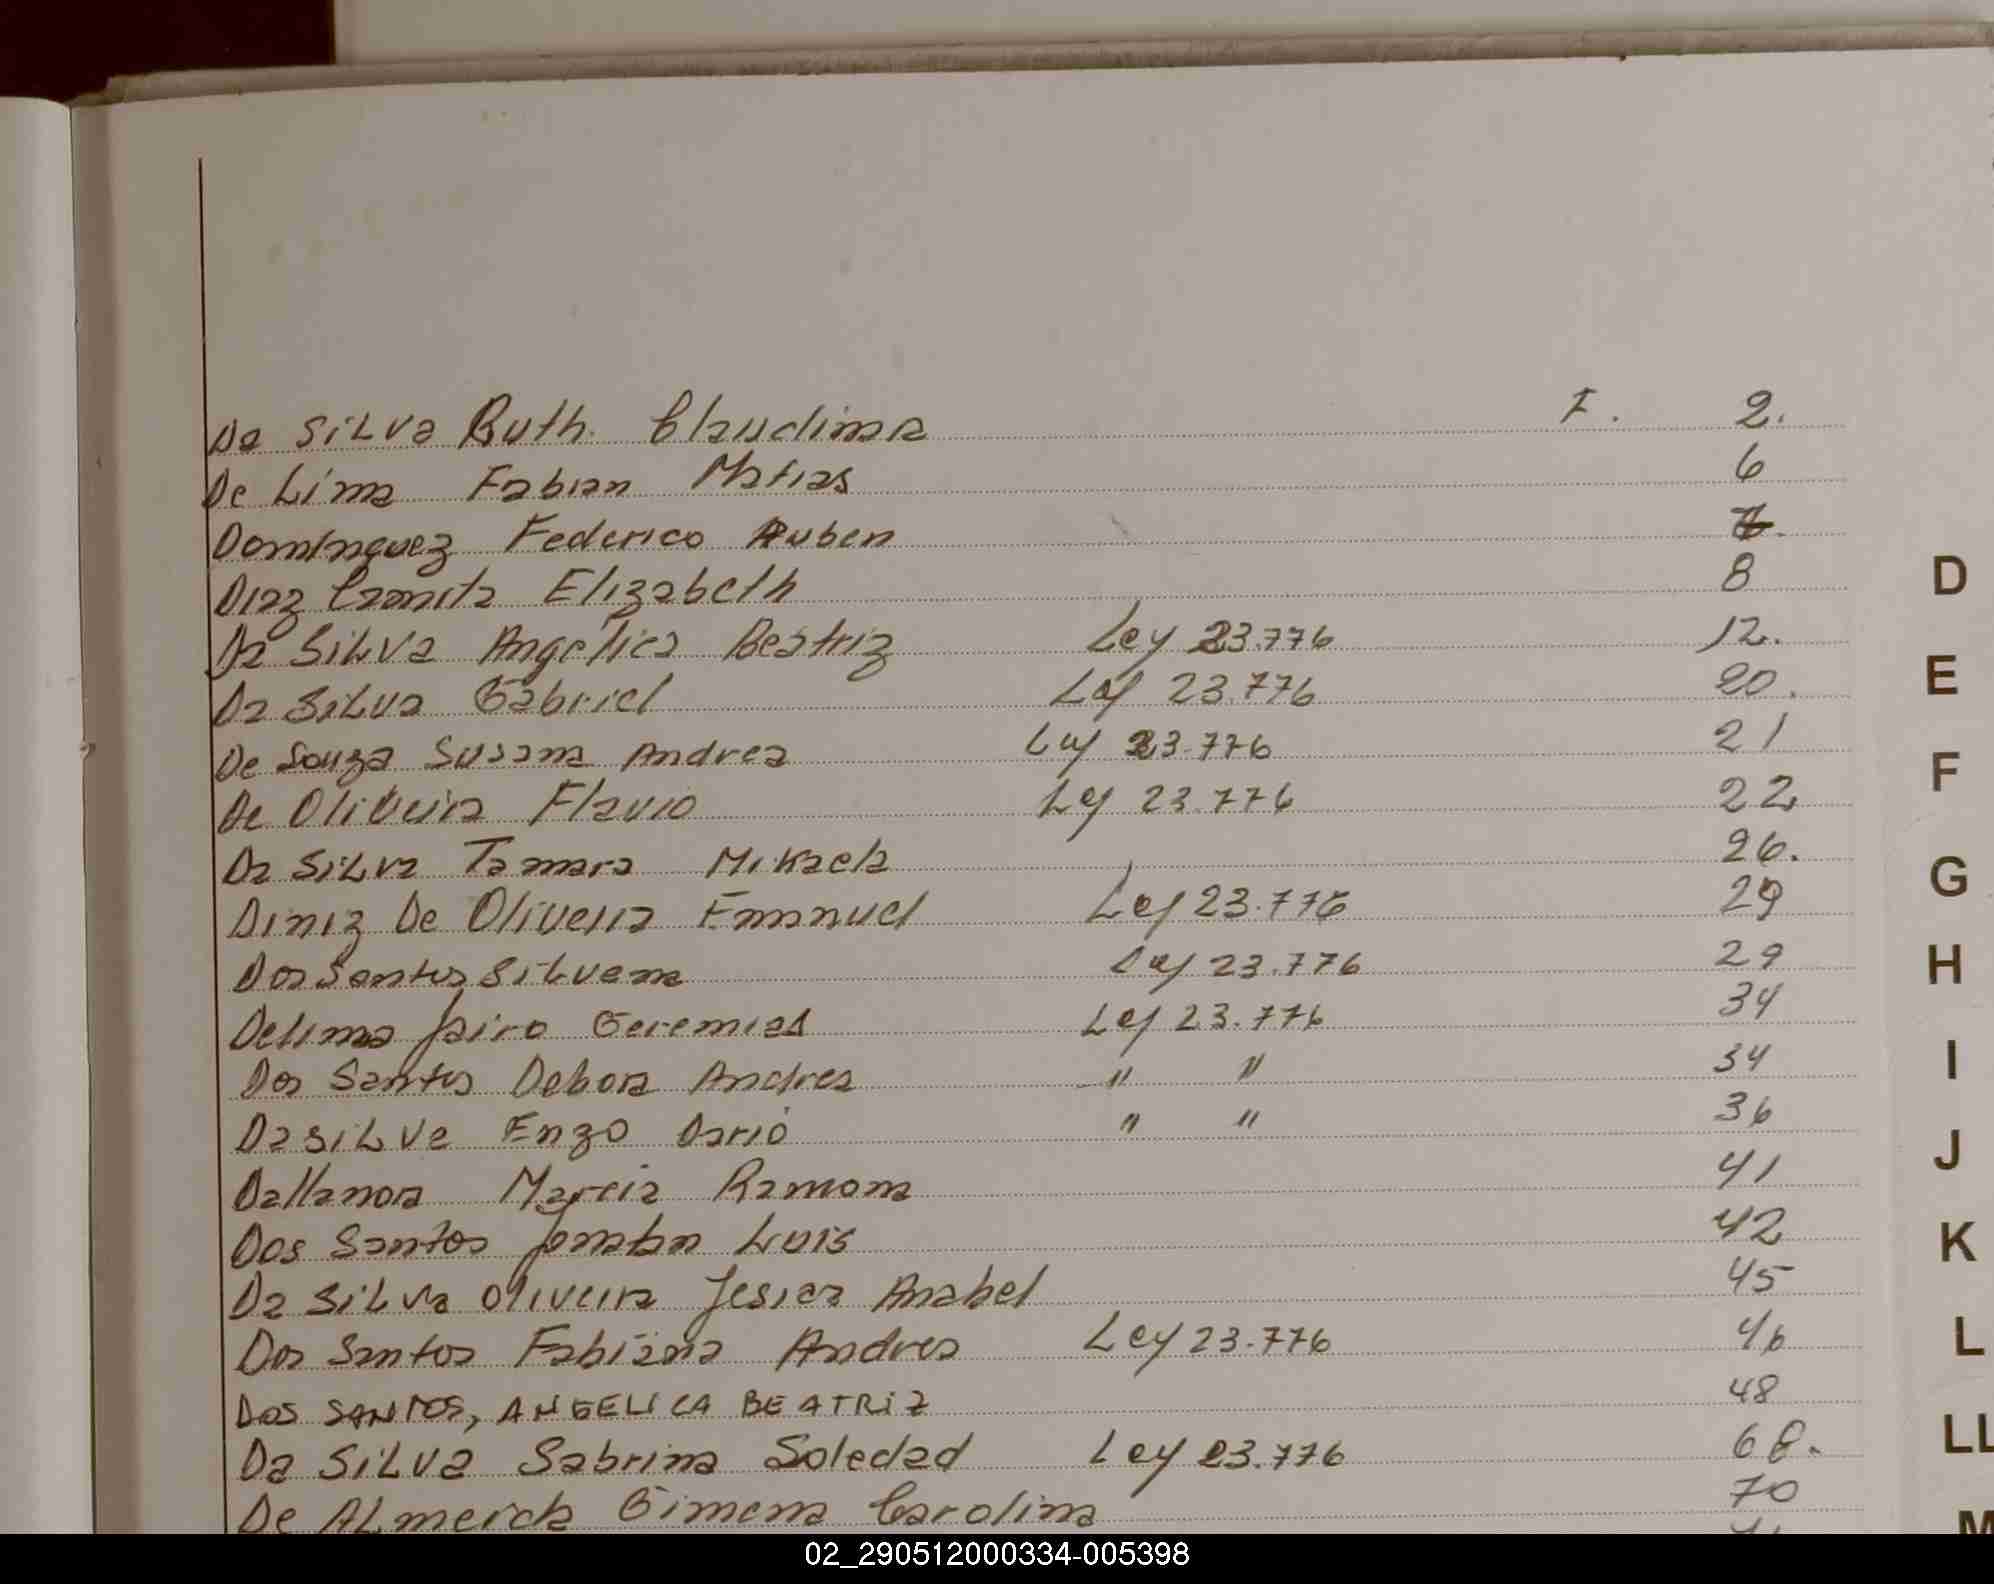 Da Silva Ruth Claudina F. 2.
De Lima Fabian Matias 6
Dominguez Federico Ruben
Diaz Camita Elizabeth 8
Da Silva Angelica Beatriz Ley 23.776 12.
Da Silva Gabriel Ley 23.776 20.
De Souza Susana Andrea Ley 23.776 21
De Oliveira Flavio Ley 23.776 22
Da Silva Tamara Mikaela 26.
Diniz De Oliveira Emanuel Ley 23.776 29
Dos Santos Silvana Ley 23.776 29
Delima Jairo Geremias Ley 23.776 34
Dos Santos Debora Andrea " " 34
Dasilva Enzo Dario " " 36
Dallanora Marcia Ramona 41
Dos Santos Jonatan Luis 42
Da Silva Oliveira Jesica Anabel 45
Dos Santos Fabiana Andrea Ley 23.776 46
DOS SANTOS, ANGELICA BEATRIZ 48
Da Silva Sabrina Soledad Ley 23.776 68.
De Almeida Gimena Carolina 70
D
E
F
G
H
I
J
K
L
LL
M
02_290512000334-005398